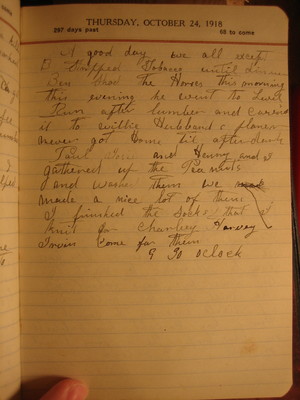 THURSDAY, OCTOBER 24, 1918
297 days past 68 to come
A good day we all except
B Stripped Tobacco until dinner
Ben Shod the Horses this morning
this evening he went to
Run after lumber and carried
it to Willie Hubbard's planer
never got home til after dark
Paul and Henry and I
gathered up the Peanuts
and washed them we
made a nice lot of them
I finished the Socks that I
knit for Charley Harvey
Irvin Come for them
9 30 oclock